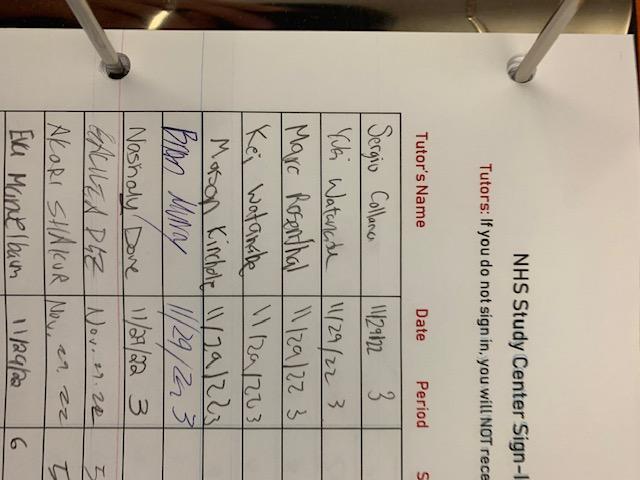 NHS Study Center Sign-I
Tutors: If you do not sign in, you will NOT rece
Tutor's Name Date Period S
Sergio 11/29/22 3
Yuki Watanabe 11/29/22 3
Marc Rosenthal 11/29/22 3
Kei Watanabe 11/29/22 3
Mason 11/29/22 3
11/29/22 3
Nashaly Dove 11/29/22 3
Nov. 29. 22
AKARI SHAKUR Nov. 29. 22
Eva Mandelbaum 11/29/22 6